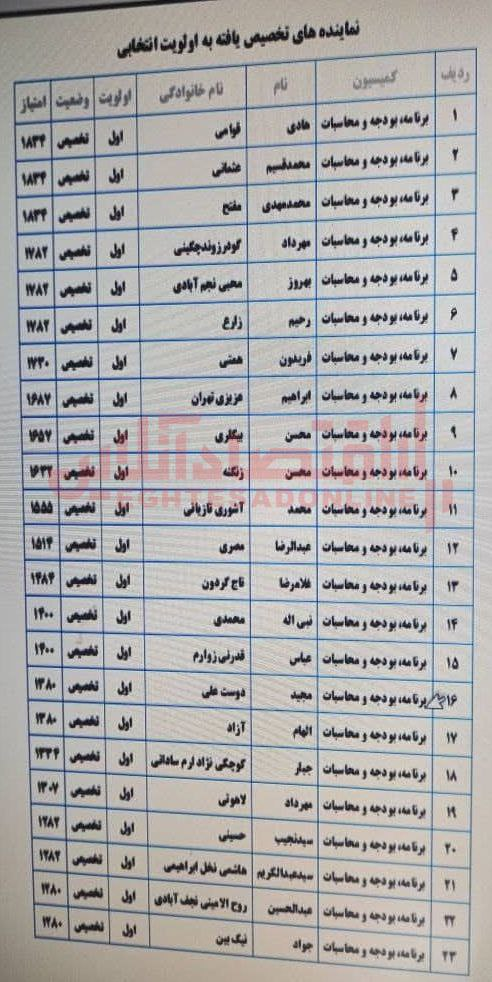 نماینده های تخصیص یافته به اولویت انتخابی
ردیف کمیسیون نام نام خانوادگی اولویت وضعیت امتیاز
۱ برنامه، بودجه و محاسبات هادی قوامی اول تخصیص ۱۸۳۴
۲ برنامه، بودجه و محاسبات محمدقسیم عثمانی اول تخصیص ۱۸۳۴
۳ برنامه، بودجه و محاسبات محمدمهدی مفتح اول تخصیص ۱۸۳۴
۴ برنامه، بودجه و محاسبات مهرداد گودرزوندچگینی اول تخصیص ۱۷۸۲
۵ برنامه، بودجه و محاسبات بهروز محبی نجم آبادی اول تخصیص ۱۷۸۲
۶ برنامه، بودجه و محاسبات رحیم زارع اول تخصیص ۱۷۸۲
۷ برنامه، بودجه و محاسبات فریدون همتی اول تخصیص ۱۷۳۰
۸ برنامه، بودجه و محاسبات ابراهیم عزیزی تهران اول تخصیص ۱۶۸۷
۹ برنامه، بودجه و محاسبات محسن بیگلری اول تخصیص ۱۶۵۷
۱۰ برنامه، بودجه و محاسبات محسن زنگنه اول تخصیص ۱۶۳۲
۱۱ برنامه، بودجه و محاسبات محمد آشوری تازیانی اول تخصیص ۱۵۵۵
۱۲ برنامه، بودجه و محاسبات عبدالرضا مصری اول تخصیص ۱۵۱۴
۱۳ برنامه، بودجه و محاسبات غلامرضا تاج گردون اول تخصیص ۱۴۸۴
۱۴ برنامه، بودجه و محاسبات نبی اله محمدی اول تخصیص ۱۴۰۰
۱۵ برنامه، بودجه و محاسبات عباس قدرتی زوارم اول تخصیص ۱۴۰۰
۱۶ برنامه، بودجه و محاسبات مجید دوست علی اول تخصیص ۱۳۸۰
۱۷ برنامه، بودجه و محاسبات الهام آزاد اول تخصیص ۱۳۸۰
۱۸ برنامه، بودجه و محاسبات جبار کوچکی نژاد ارم ساداتی اول تخصیص ۱۳۳۴
۱۹ برنامه، بودجه و محاسبات مهرداد لاهوتی اول تخصیص ۱۳۰۷
۲۰ برنامه، بودجه و محاسبات سیدنجیب حسینی اول تخصیص ۱۲۸۲
۲۱ برنامه، بودجه و محاسبات سیدعبدالکریم هاشمی نخل ابراهیمی اول تخصیص ۱۲۸۲
۲۲ برنامه، بودجه و محاسبات عبدالحسین روح الامینی نجف آبادی اول تخصیص ۱۲۸۰
۲۳ برنامه، بودجه و محاسبات جواد نیک بین اول تخصیص ۱۲۸۰
اقتصادآنلاین
EGHTESADONLINE